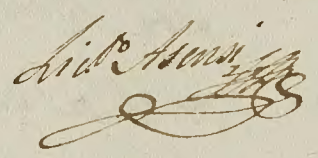 Licdo Asensi